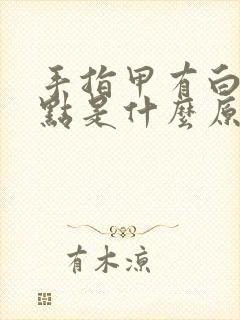 手指甲有白
點是什麼原
有木凉